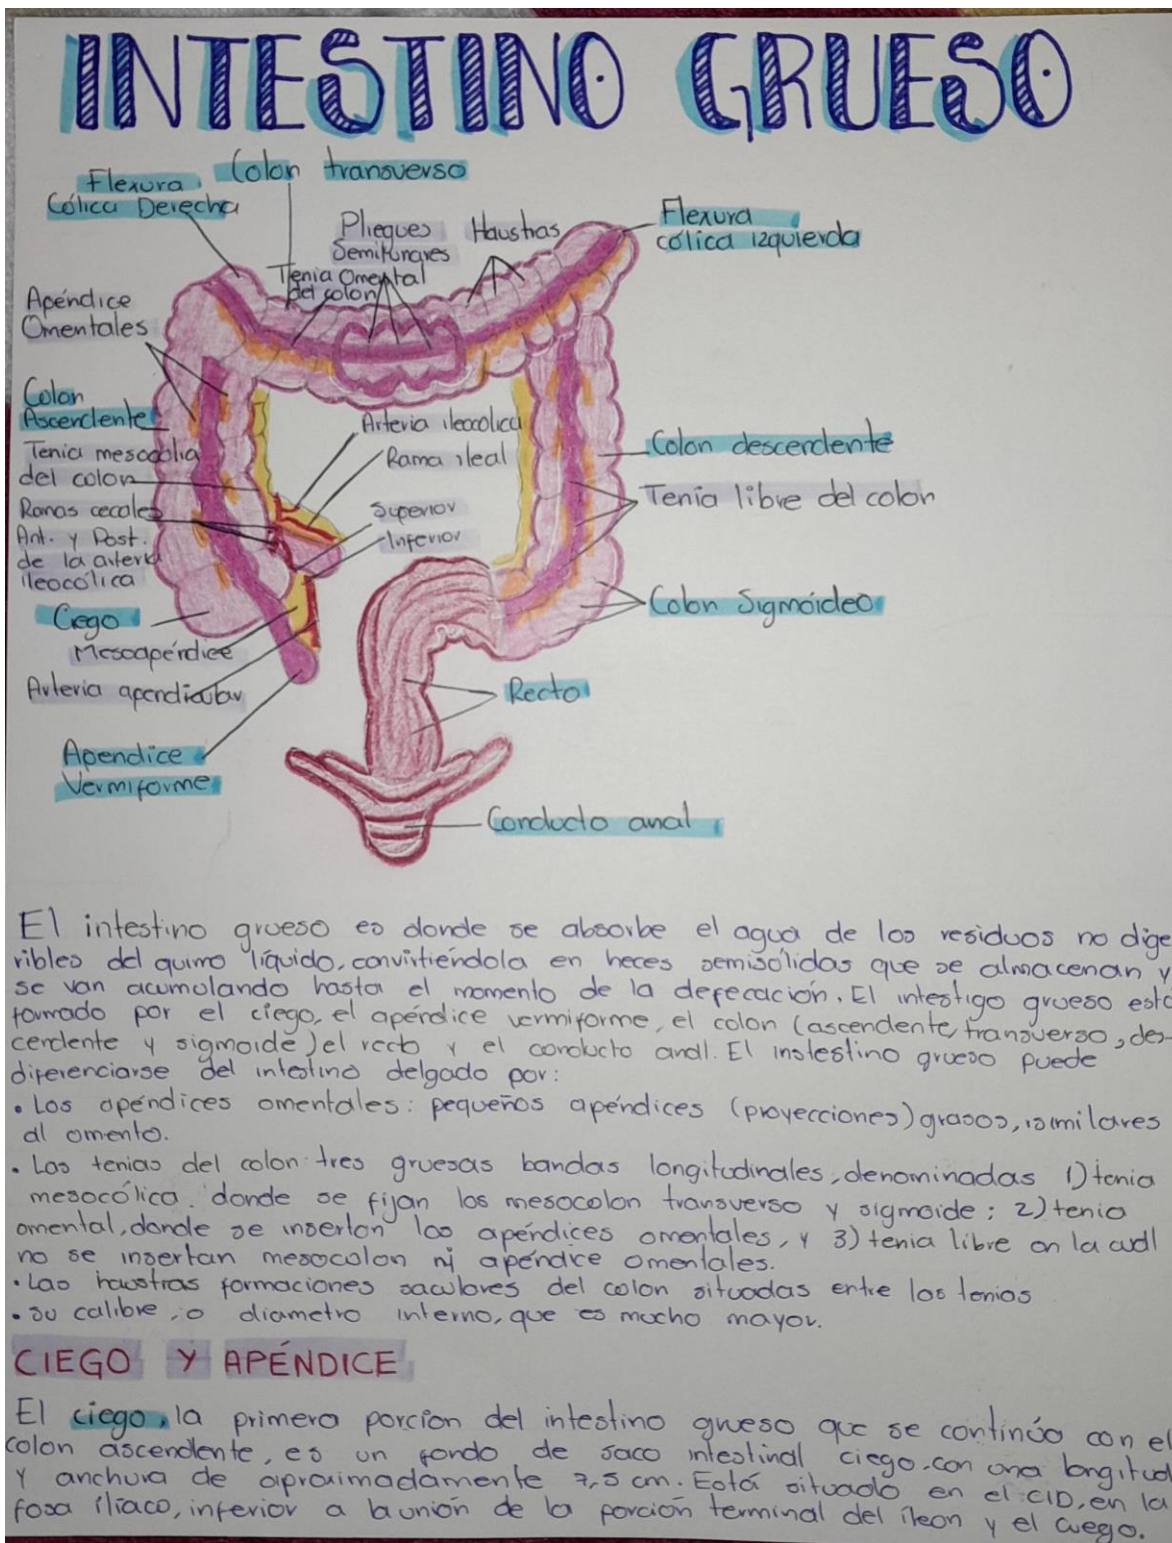 INTESTINO GRUESO
Flexura
Cólica Derecha
Colon transverso
Pliegues
Semilunares
Haustras
Flexura
cólica izquierda
Tenia Omental
del colon
Apéndice
Omentales
Colon
Ascendente
Tenia mesocolia
del colon
Ramas cecales
Ant. y Post.
de la arteria
ileocólica
Ciego
Mesoapéndice
Arteria apendicular
Apendice
Vermiforme
Arteria ileocolica
Rama ileal
Superior
Inferior
Colon descendente
Tenia libre del colon
Colon Sigmóideo
Recto
Conducto anal
El intestino grueso es donde se absorbe el agua de los residuos no dige
ribles del quimo líquido, convirtiéndola en heces semisólidas que se almacenan y
se van acumulando hasta el momento de la defecación. El intestigo grueso está
formado por el ciego, el apéndice vermiforme, el colon (ascendente, transverso, des-
cendente y sigmoide) el recto y el conducto anal. El instestino grueso puede
diferenciarse del intestino delgado por:
• Los apéndices omentales: pequeños apéndices (proyecciones) grasos, similares
al omento.
• Las tenias del colon: tres gruesas bandas longitudinales, denominadas 1) tenia
mesocólica. donde se fijan los mesocolon transverso y sigmoide; 2) tenia
omental, donde se insertan los apéndices omentales, y 3) tenia libre en la cual
no se insertan mesocolon ni apéndice omentales.
• Las haustras formaciones saculares del colon situadas entre las tenias
• su calibre, o diametro interno, que es mucho mayor.
CIEGO Y APÉNDICE
El ciego, la primera porción del intestino grueso que se continúa con el
colon ascendente, es un fondo de saco intestinal ciego. con una longitud
y anchura de aproximadamente 7,5 cm. Está situado en el CID, en la
fosa ilíaca, inferior a la unión de la porción terminal del íleon y el ciego.